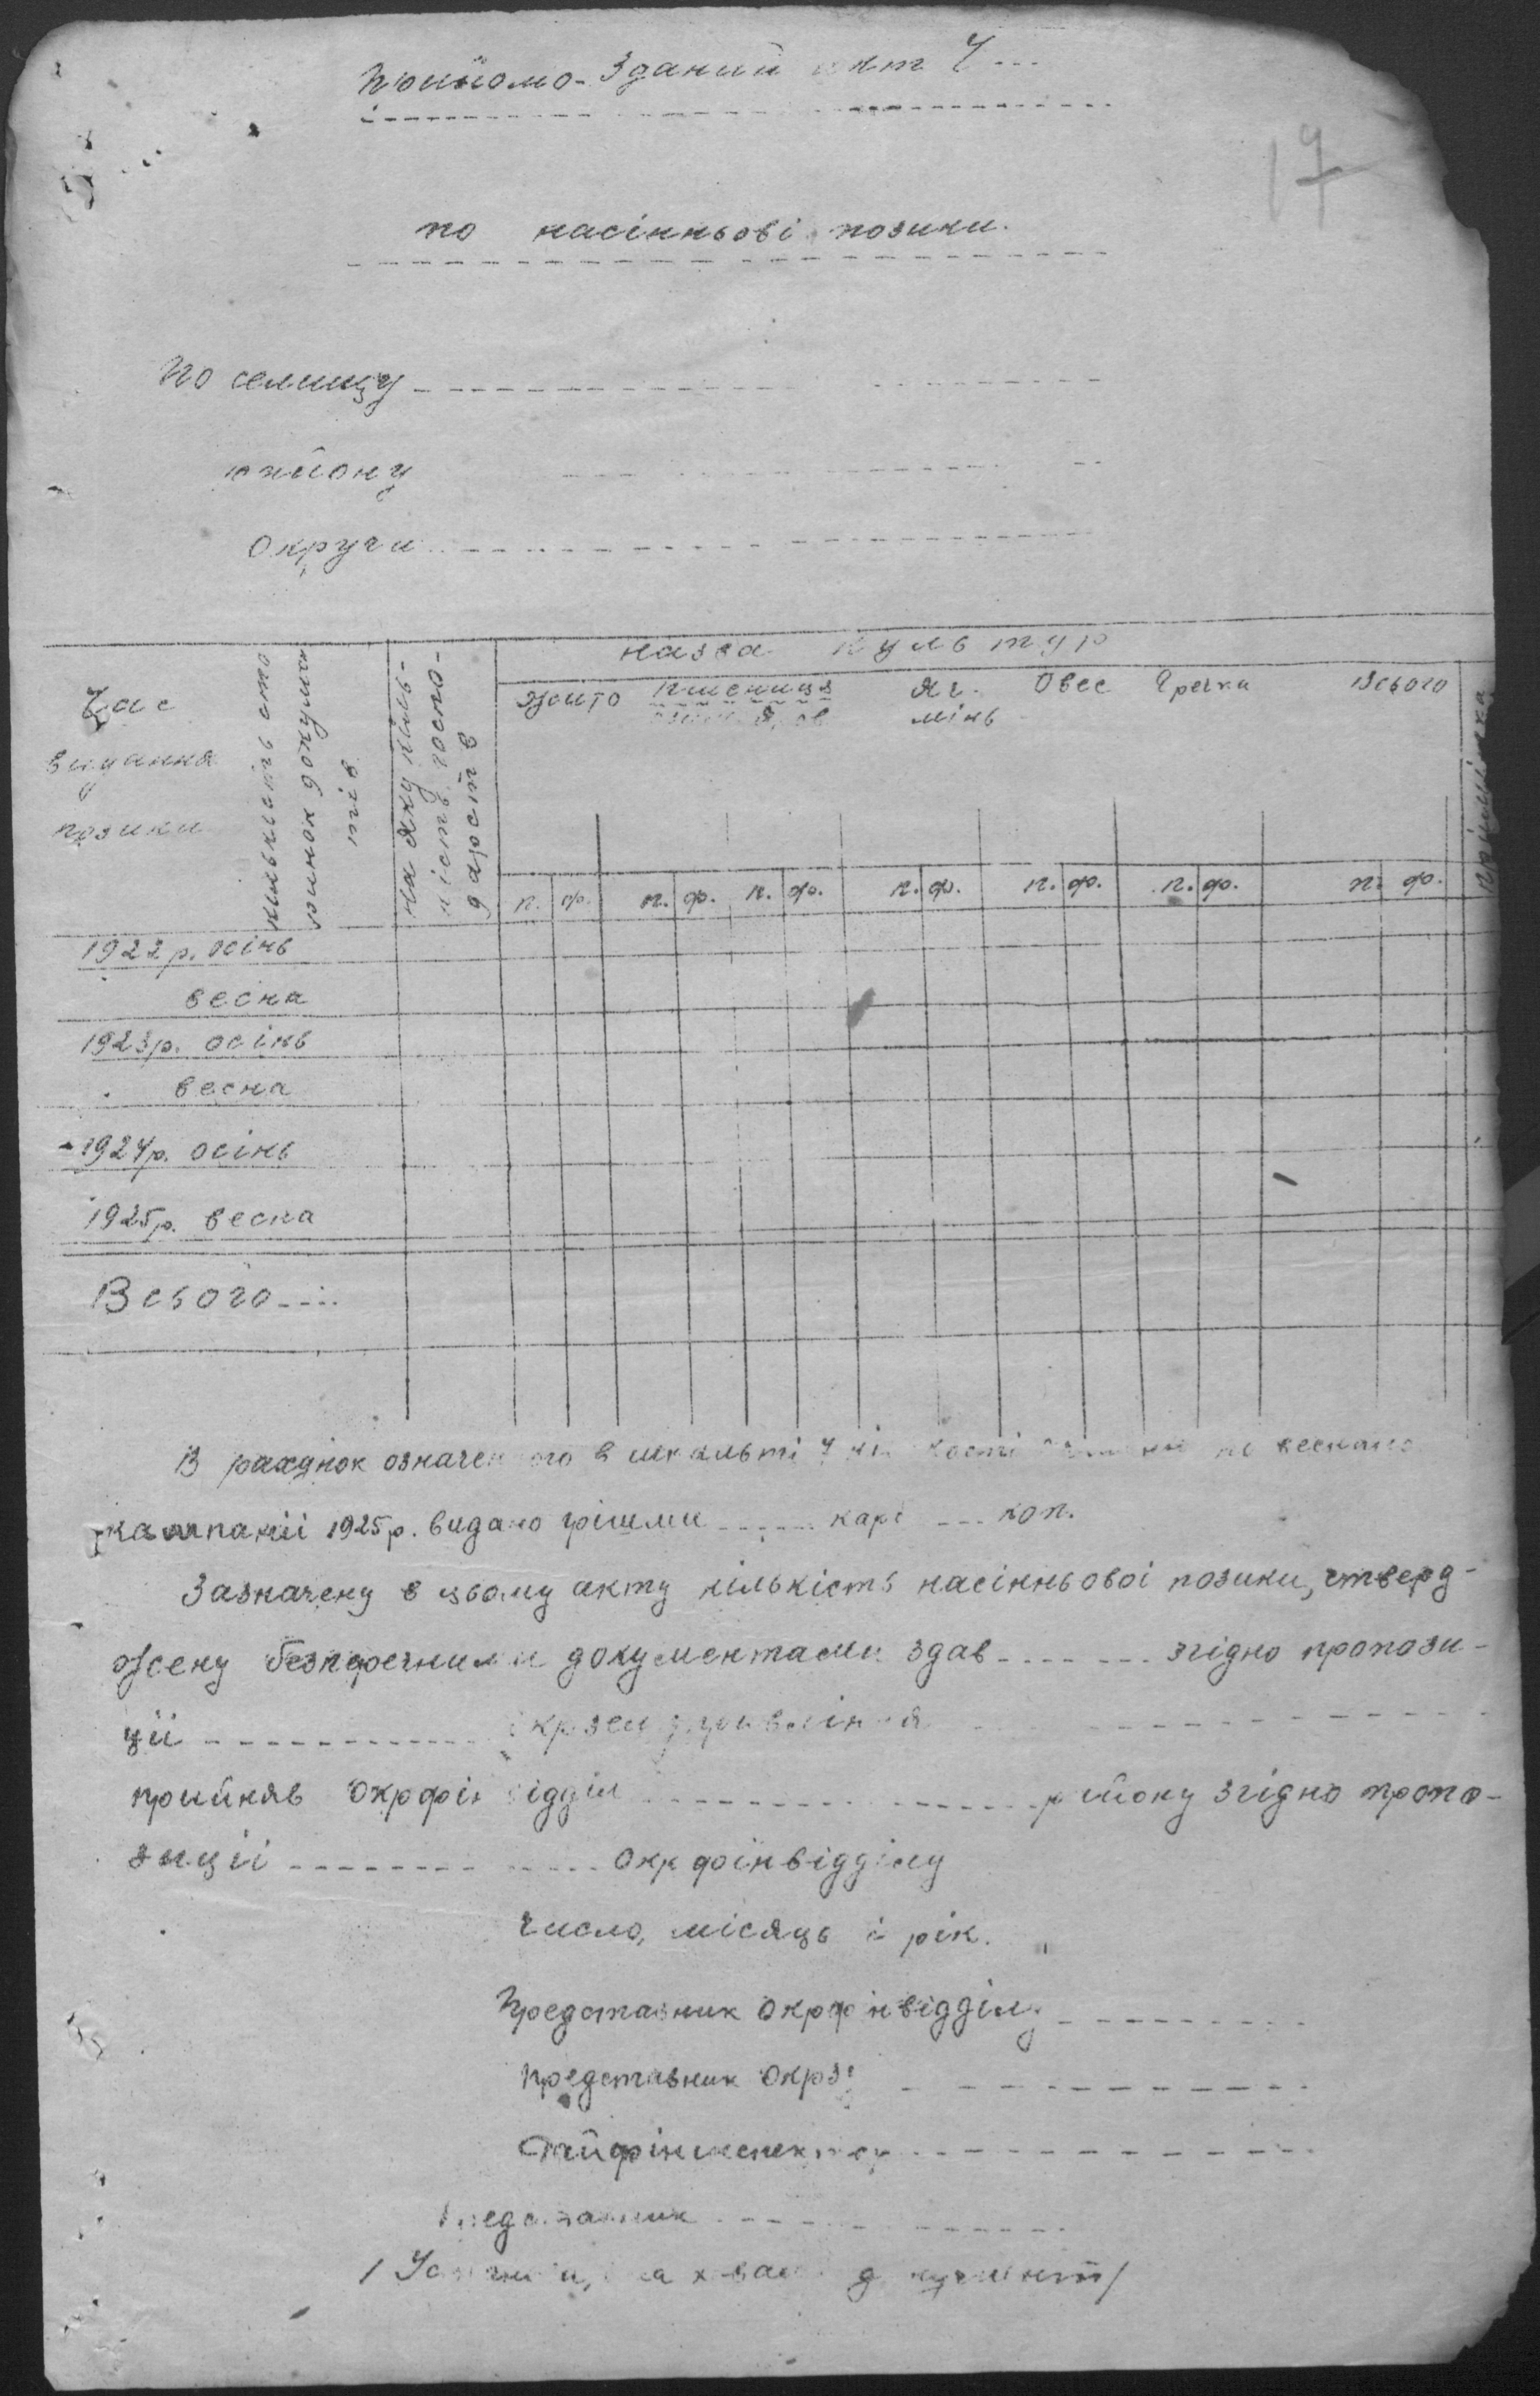 Прийомо-Зданий акт Ч ---
17
по насінньові позики.
По селищу
району
Округи
Час видання позики
кількість сто
ринок докумен
тів
на яку кіль-
кість госпо-
дарств
назва культур
Жито
пшениця
Яч-
мінь
Овес
Гречка
Всього
примітка
п. ф. п. ф. п. ф. п. ф. п. ф. п. ф. п. ф.
1922 р. осінь
весна
1923 р. осінь
весна
1924 р. осінь
1925 р. весна
Всього ----
В рахунок означеного в
кампаніі 1925 р. видано грішми ------ карб ---- коп.
Зазначену в цьому акту кількість насінньовоі позики, стверд-
жену безперечними документами здав ------- згідно пропози-
ціі ------------ Окрземуправління
прийняв Окрфінвідділ ------------ району згідно пропо-
зиціі ------------ Окрфінвідділу
Число, місяць і рік.
Представник Окрфінвідділу
Представник Окрзу
Райфінинспектор
Представник